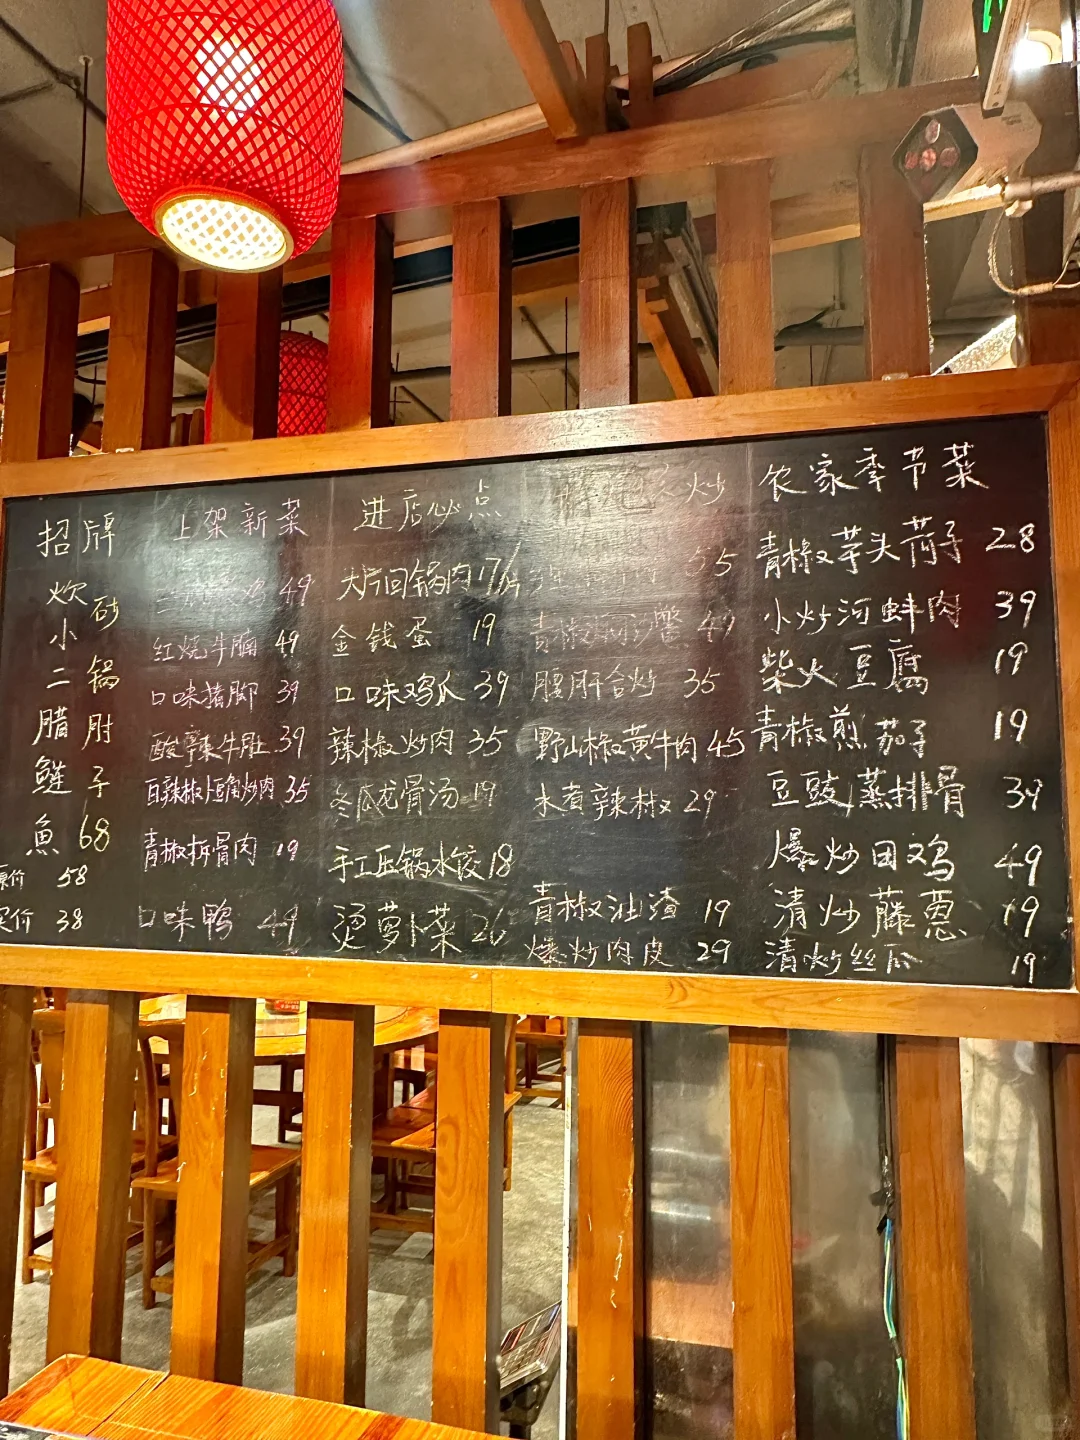 招牌
炊小二腊鲢魚
砂锅肘子 68
原价 58
38
上架新菜
鸡 49
红烧牛腩 49
口味猪脚 39
酸辣牛肚 39
35
青椒拆骨肉 19
口味鸭 49
进店必点
大片回锅肉 17/片
金钱蛋 19
口味鸡爪 39
辣椒炒肉 35
冬瓜龙骨汤 19
手工压锅水饺 18
烫萝卜菜 26
炒
55
青椒 49
腰肝合炒 35
野山椒黄牛肉 45
水煮辣椒 29
青椒油渣 19
爆炒肉皮 29
农家季节菜
青椒芋头荷子 28
小炒河蚌肉 39
柴火豆腐 19
青椒煎茄子 19
豆豉蒸排骨 39
爆炒田鸡 49
清炒藤蔥 19
清炒丝瓜 19